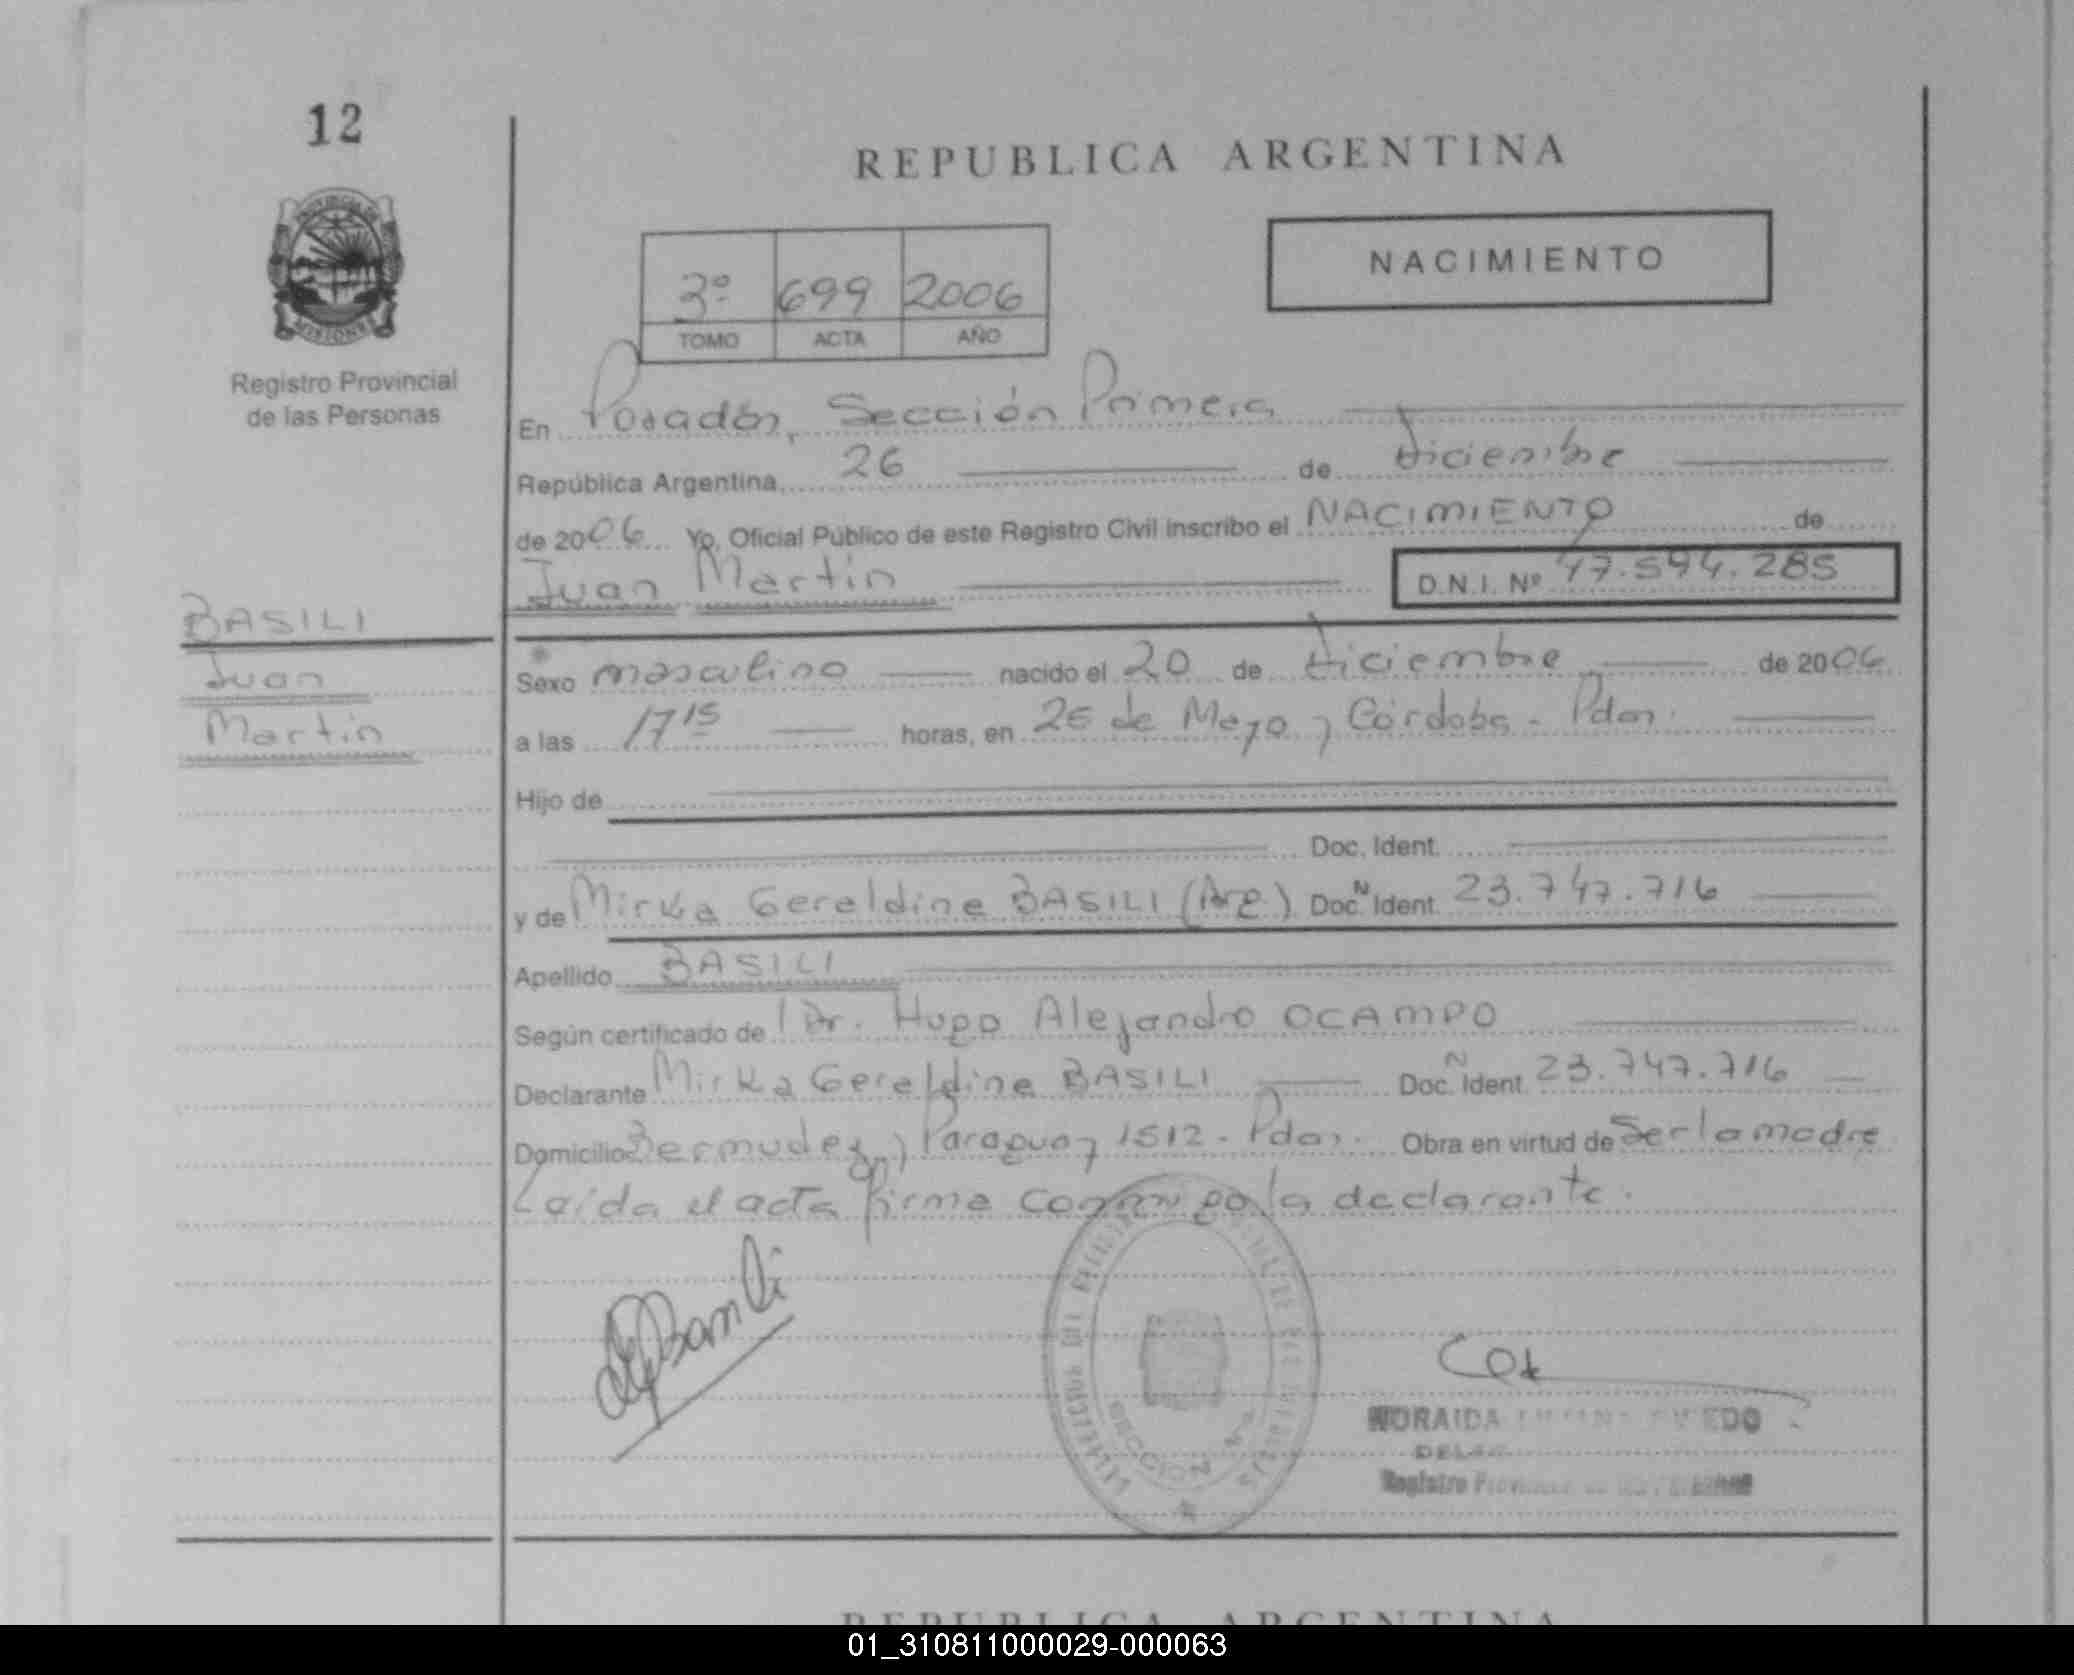 12
REPUBLICA ARGENTINA
NACIMIENTO
3º 699 2006
TOMO ACTA AÑO
PROVINCIA DE
MISIONES
Registro Provincial
de las Personas
En Posadas, Sección Primera
República Argentina, 26 de diciembre
de 2006 Yo, Oficial Público de este Registro Civil inscribo el NACIMIENTO de
Juan Martin D.N.I. Nº 47.594.285
BASILI
Juan
Martin
Sexo masculino nacido el 20 de diciembre de 2006
a las 17 15 horas, en 25 de Mayo y Córdoba - Pdas.
Hijo de
Doc. Ident.
y de Mirka Geraldine BASILI (Arg) Doc. N Ident. 23.747.716
Apellido BASILI
Según certificado de Dr. Hugo Alejandro OCAMPO
Declarante Mirka Geraldine BASILI Doc. N Ident. 23.747.716
Domicilio Bermudez y Paraguay 1512 - Pdas. Obra en virtud de Ser la madre
Leída el acta firma conmigo la declarante.
SECCION
NORAIDA
Registro
REPUBLICA ARGENTINA
01_310811000029-000063